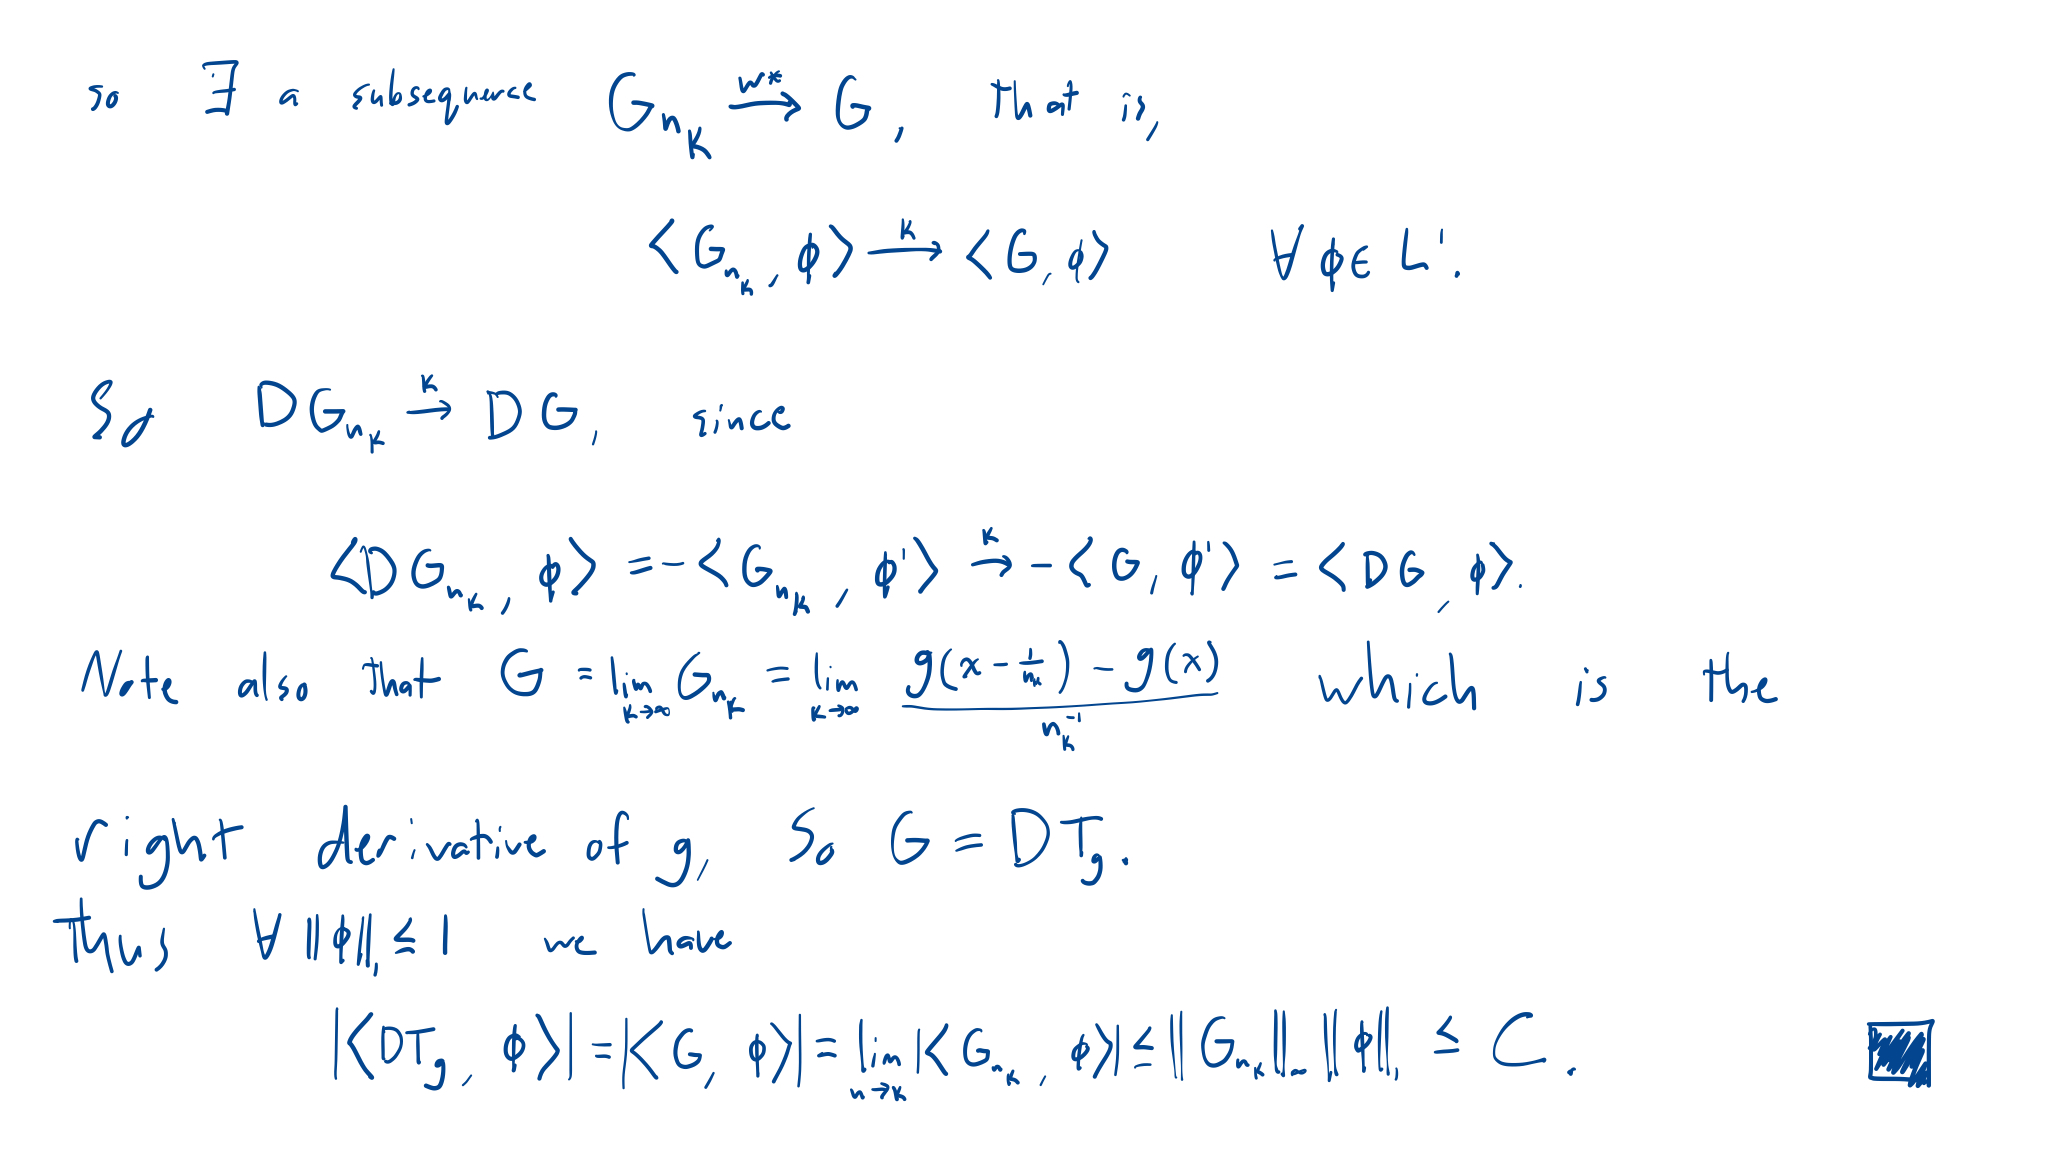 so ∃ a subsequence G_{n_k} \xrightarrow{w*} G, that is,
⟨G_{n_k}, φ⟩ \xrightarrow{k} ⟨G, φ⟩ ∀ φ ∈ L¹.
So DG_{n_k} \xrightarrow{k} DG, since
⟨DG_{n_k}, φ⟩ = -⟨G_{n_k}, φ'⟩ \xrightarrow{k} -⟨G, φ'⟩ = ⟨DG, φ⟩.
Note also that G = \lim_{k→∞} G_{n_k} = \lim_{k→∞} \frac{g(x - \frac{1}{n_k}) - g(x)}{n_k^{-1}} which is the
right derivative of g, So G = DT_g.
Thus ∀ ‖φ‖₁ ≤ 1 we have
|⟨DT_g, φ⟩| = |⟨G, φ⟩| = \lim_{n→k} |⟨G_{n_k}, φ⟩| ≤ ‖G_{n_k}‖_∞ ‖φ‖₁ ≤ C.